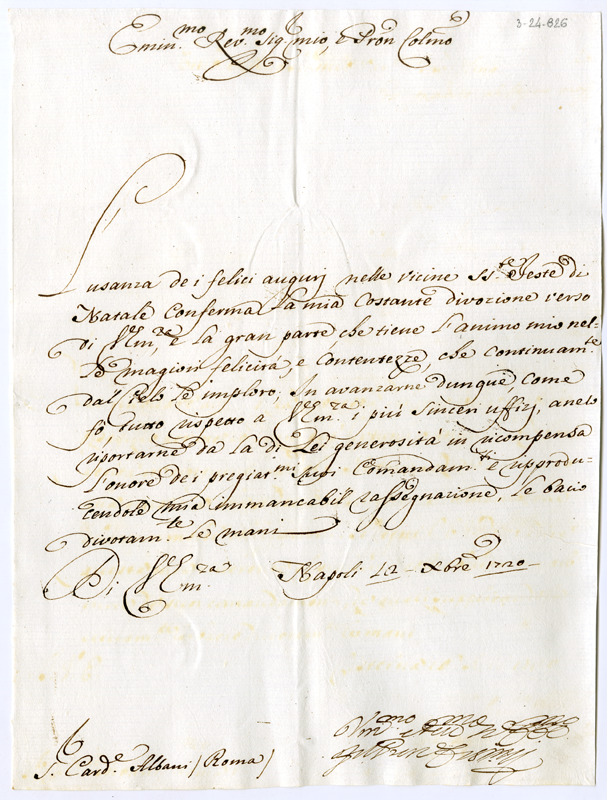 3-24-826
Emin.mo Rev.mo Sig. mio, e Pron Colmo
L'usanza dei felici augurj nelle vicine SS.te Feste di
Natale conferma la mia costante divozione verso
di V. Em.za e la gran parte che tiene l'animo mio nel-
le magiori felicità, e contentezze, che continuam.te
dal Cielo le imploro. In avanzarne dunque, come
fò, tutto rispetto a V. Em.za i più sinceri uffizj, anelo
riportarne da la di Lei generosità in ricompensa
l'onore dei pregiat.mi suoi comandam.ti e riprodu-
cendole mia immancabil rassegnazione, le bacio
divotam.te le mani
Di V. Em.za Napoli 12 Xbre 1720
S. Card.e Albani / Roma /